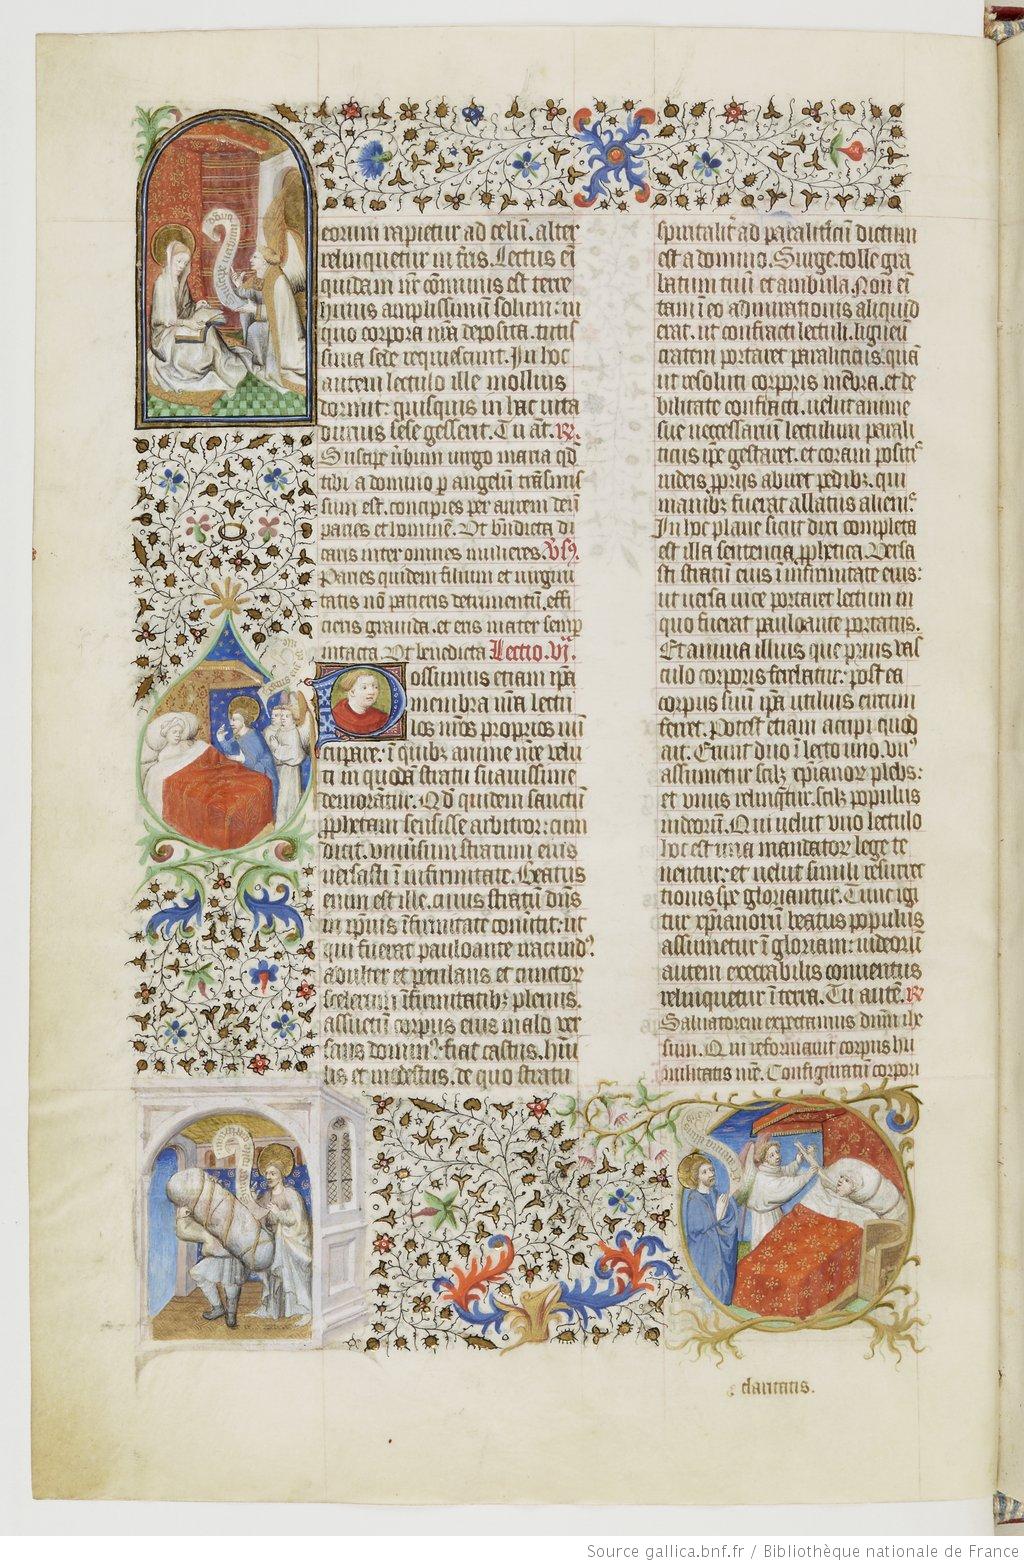 eorum rapietur ad celū. alter
relinquetur in tr̄is. Lectus eī
quidam nr̄e com̄unis est terre
humus amplissimū solum: in
quo corpora nr̄a deposita. tutis
sima sede requiescunt. In hoc
autem lectulo ille mollius
dormit: quisquis in hac uita
durius sese gesserit. Tu āt. R̄.
Suscipe ūbum uirgo maria qd̄
tibi a domino p angelū trāsmis
sum est. concipies per aurem deū
paries et hominē. Ut bn̄dicta di
caris inter omnes mulieres. Vs̄.
Paries quidem filium et uirgini
tatis nō patieris detrimentū. effi
cieris grauida. et eris mater semp
intacta. Ut benedicta Lectio. vj.
Possumus etiam ip̄a
membra nr̄a lectu
los nr̄os proprios nū
cupare: ī quibꝫ anime nr̄e velu
ti in quodā stratu suauissime
demorātur. Qd̄ quidem sanctū
ꝓphetam sensisse arbitror: cum
dicit. vniūsum stratum eius
uersasti ī infirmitate. Beatus
enim est ille. cuius stratū dn̄s
in ꝓpius īfirmitate cōuītit: ut
qui fuerat pauloante iracūdꝰ.
adulter et petulans et cunctor
scelerum īfirmitatibꝫ plenus.
assuetū corpus eius malo ver
sans dominꝰ: fiat castus. hūi
lis et modestus. de quo stratu
spiritalit̄ ad paraliticū dictum
est a domino. Surge. tolle gra
batum tuū et ambula. Non eī
tam ī eo admirationis aliquid
erat. ut confracti lectuli. ligneū
cratem portaret paraliticus. quā
ut resoluti corporis mēbra. et de
bilitate confracti. uelut anime
sue necessarium lectulum parali
ticus ip̄e gestaret. et coram positꝰ
iudeis ꝓpriis abiret pedibꝫ. qui
manibꝫ fuerat allatus alienꝰ.
In hoc plane sicut dixi completa
est illa sentencia ꝓphetica. Versa
sti stratū eius ī infirmitate eius:
ut uersa uice portaret lectum in
quo fuerat pauloante portatus.
Et anima illius que prius vas
culo corporis ferebatur: post ea
corpus suū ip̄a utilius circum
ferret. Potest etiam accipi quod
ait. Erunt duo ī lecto uno. vnꝰ
assumetur scilꝫ xp̄ianorꝫ plebs:
et vnus relinq̄tur. scilꝫ populus
iudeorū. Qui uelut vno lectulo
hoc est una mandatorꝫ lege te
nentur: et uelut simili resurrec
tionis spe gloriantur. Tunc igi
tur xp̄ianorū beatus populus
assumetur ī gloriam: iudeorū
autem execrabilis conuentus
relinquetur ī terra. Tu autē. R̄
Saluatorem expectamus dn̄m ih̄e
sum. Qui reformauit corpus hu
militatis nr̄e. Configuratū corpori
claritatis.
Source gallica.bnf.fr / Bibliothèque nationale de France